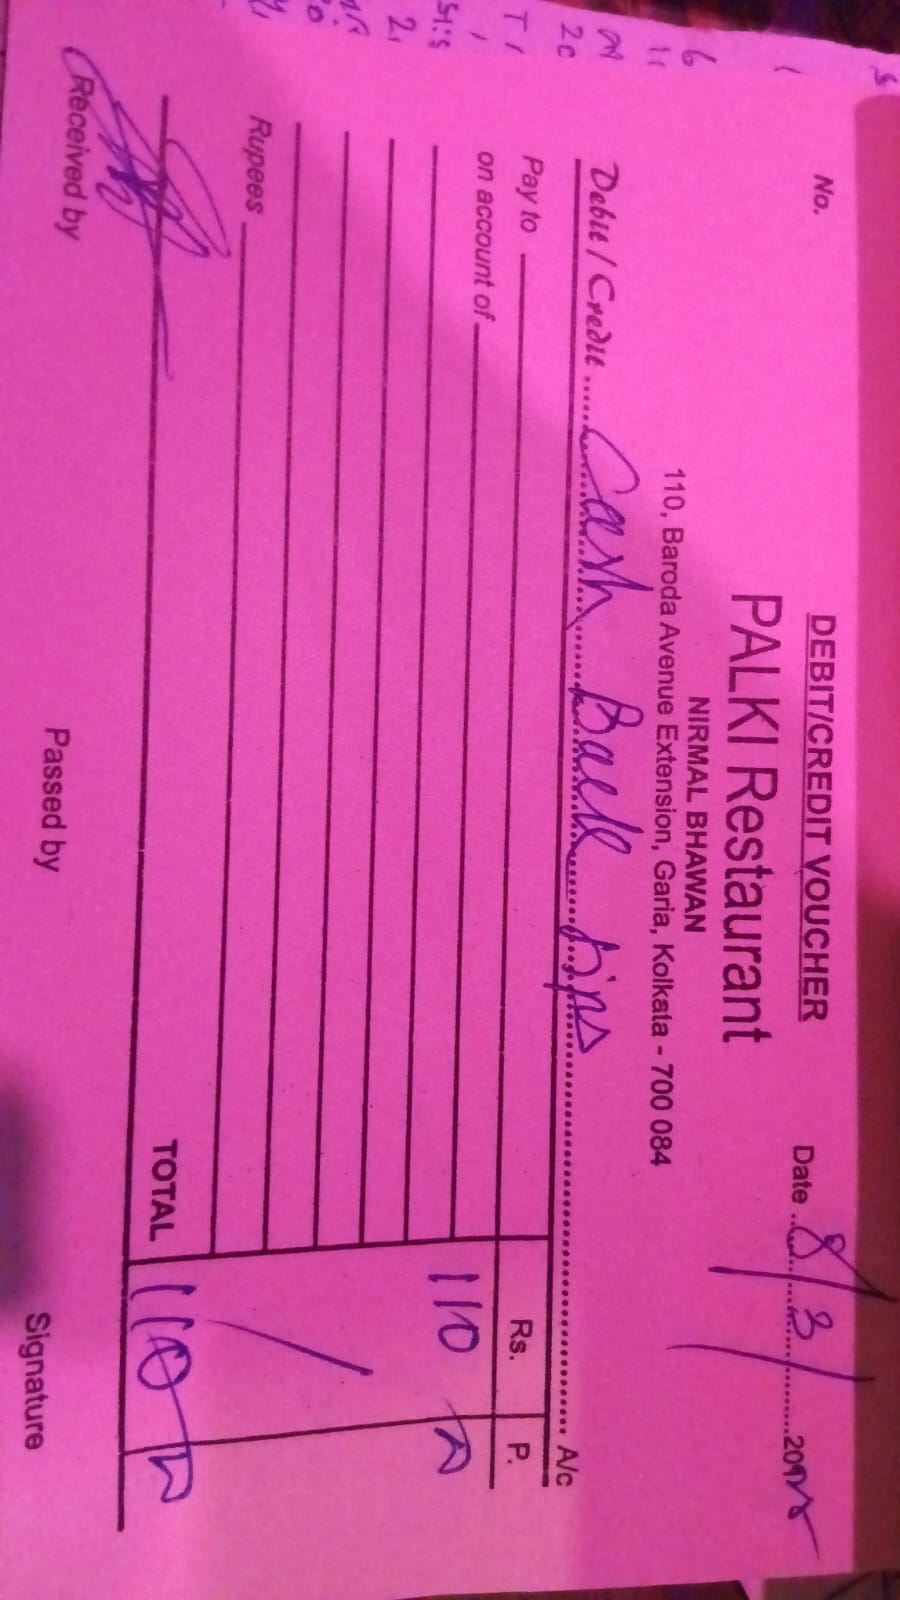 DEBIT/CREDIT VOUCHER
No.
Date 8/3/
PALKI Restaurant
NIRMAL BHAWAN
110, Baroda Avenue Extension, Garia, Kolkata - 700 084
Debit / Credit Cash Back tips A/c
Pay to Rs. P.
on account of
110
Rupees
TOTAL 110
Received by Passed by Signature